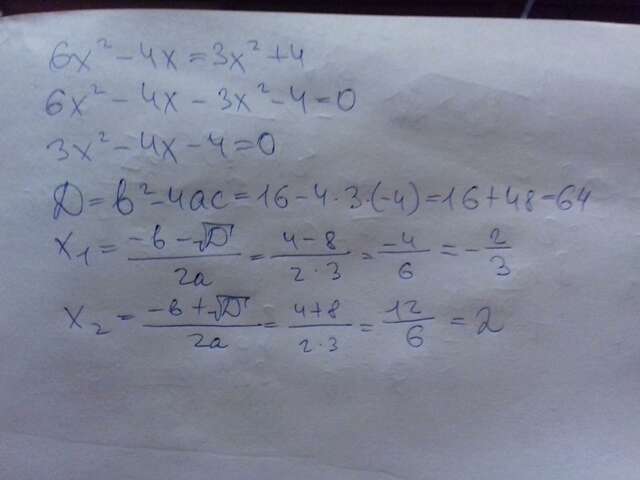 6x² - 4x = 3x² + 4
6x² - 4x - 3x² - 4 = 0
3x² - 4x - 4 = 0
D = b² - 4ac = 16 - 4 · 3 · (-4) = 16 + 48 = 64
x₁ = (-b - √D) / 2a = (4 - 8) / (2 · 3) = -4/6 = -2/3
x₂ = (-b + √D) / 2a = (4 + 8) / (2 · 3) = 12/6 = 2